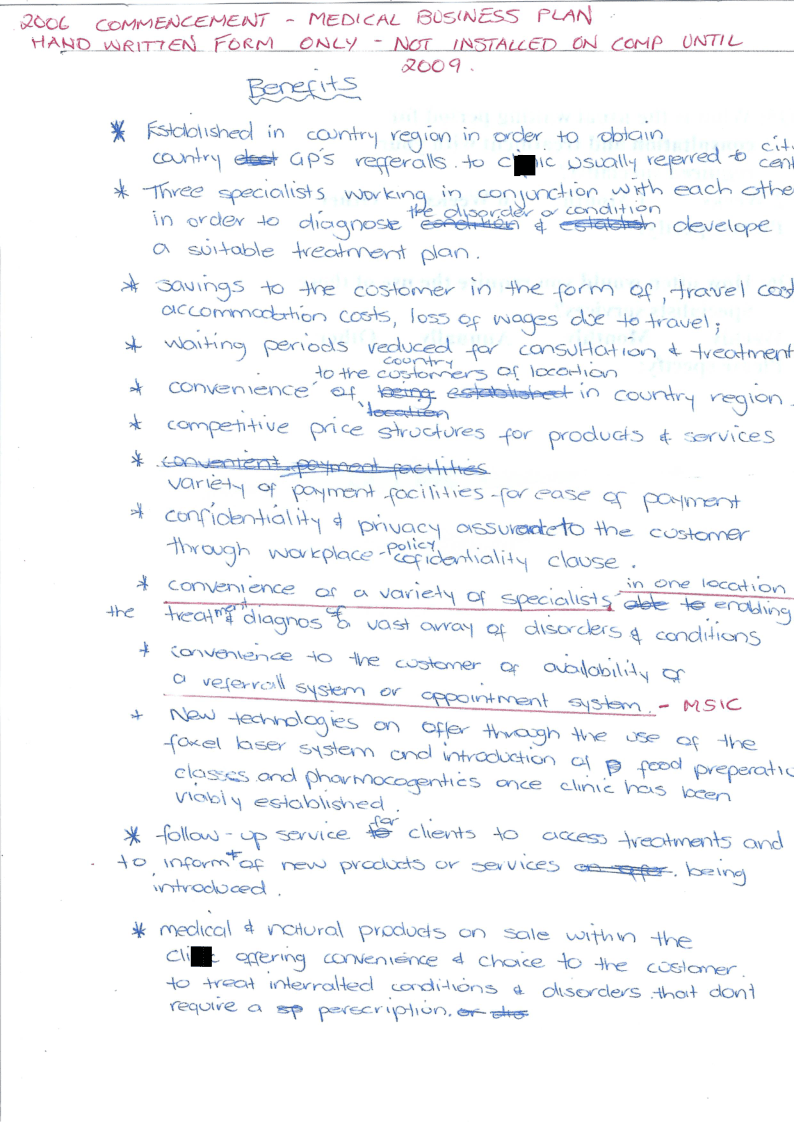 2006 COMMENCEMENT - MEDICAL BUSINESS PLAN
HAND WRITTEN FORM ONLY - NOT INSTALLED ON COMP UNTIL
2009.
Benefits
* Established in country region in order to obtain
country GP'S refferalls. to c ic usually referred to citi cent
* Three specialists working in conjunction with each othe
in order to diagnose the disorder or condition & develope
a suitable treatment plan.
* savings to the costomer in the form of, travel cost
accommodation costs, loss of wages due to travel;
* waiting periods reduced for consultation & treatment
country
to the customers of location
* convenience of being established in country region.
location
* competitive price structures for products & services
* convenient payment facilities
variety of payment facilities for ease of payment
* confidentiality & privacy assured to the customer
through workplace - policy cofidentiality clause.
* convenience of a variety of specialists in one location
able to enabling
the treatmt & diagnos of a vast array of disorders & conditions
* convenience to the customer of availability of
a referrall system or appointment system. - MSIC
* New technologies on offer through the use of the
foxel laser system and introduction of food preperatio
classes and pharmocogentics once clinic has been
viably established.
* follow-up service for clients to access treatments and
to inform of new products or services on offer. being
introduced.
* medical & natural products on sale within the
cli offering convenience & choice to the customer.
to treat interralted conditions & disorders that dont
require a sp perscription. or